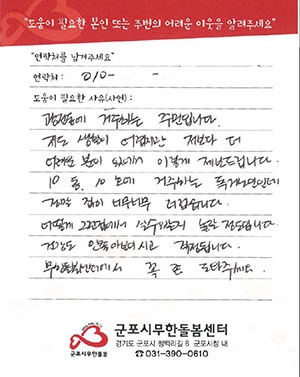 "도움이 필요한 본인 또는 주변의 어려운 이웃을 알려주세요"
"연락처를 남겨주세요"
연락처 : 010- -
도움이 필요한 사유(사연) :
거주하는 주민입니다.
저도 생활이 어렵지만 저보다 더
어려운 분이 이렇게 제보드립니다.
10 동, 10 호에 거주하는 독거노인인데
집이 너무너무 더럽습니다.
어떻게 그런집에서 놀랄 정도입니다.
건강도 안좋아보이시고 걱정됩니다.
무한돌봄센터에서 꼭 좀 도와주세요.
군포시무한돌봄센터
경기도 군포시 청백리길 6 군포시청 내
☎ 031-390-0610
군포시무한돌봄